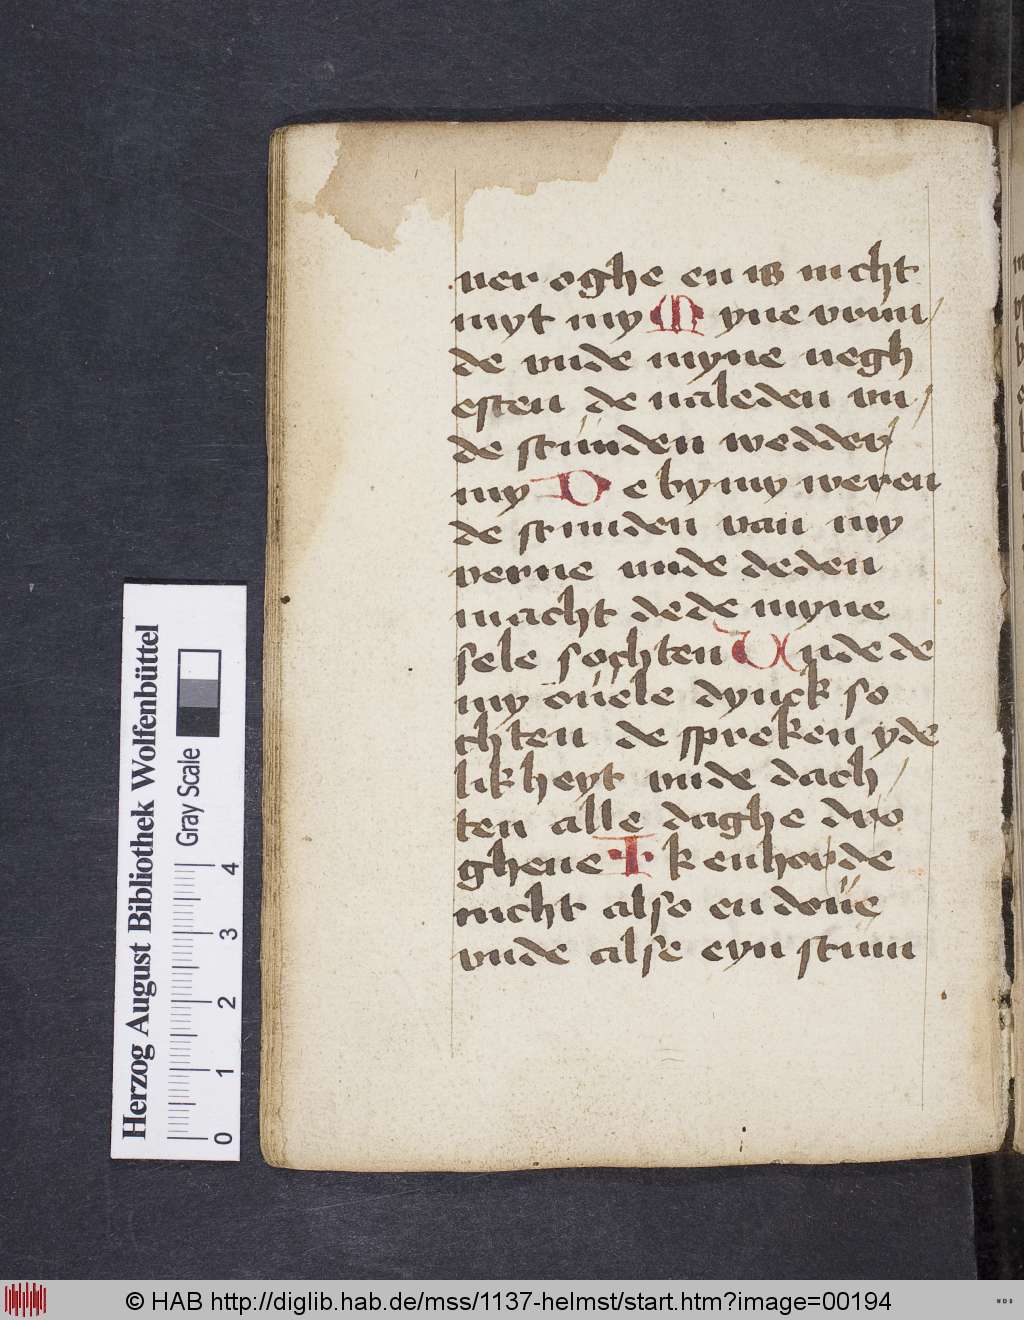 ner oghe en is nicht
myt my Myne vrun
de vnde myne negh
esten de naleden vn
de stunden wedder
my De by my weren
de stunden van my
verne unde deden
macht de de myne
sele sochten Unde de
my ouele dynck so
chten de spreken yde
likheyt vnde dach
ten alle daghe dro
ghene Ik enhorde
nicht also en doue
vnde alse eyn stum
Herzog August Bibliothek Wolfenbüttel
Gray Scale
0 1 2 3 4
© HAB http://diglib.hab.de/mss/1137-helmst/start.htm?image=00194